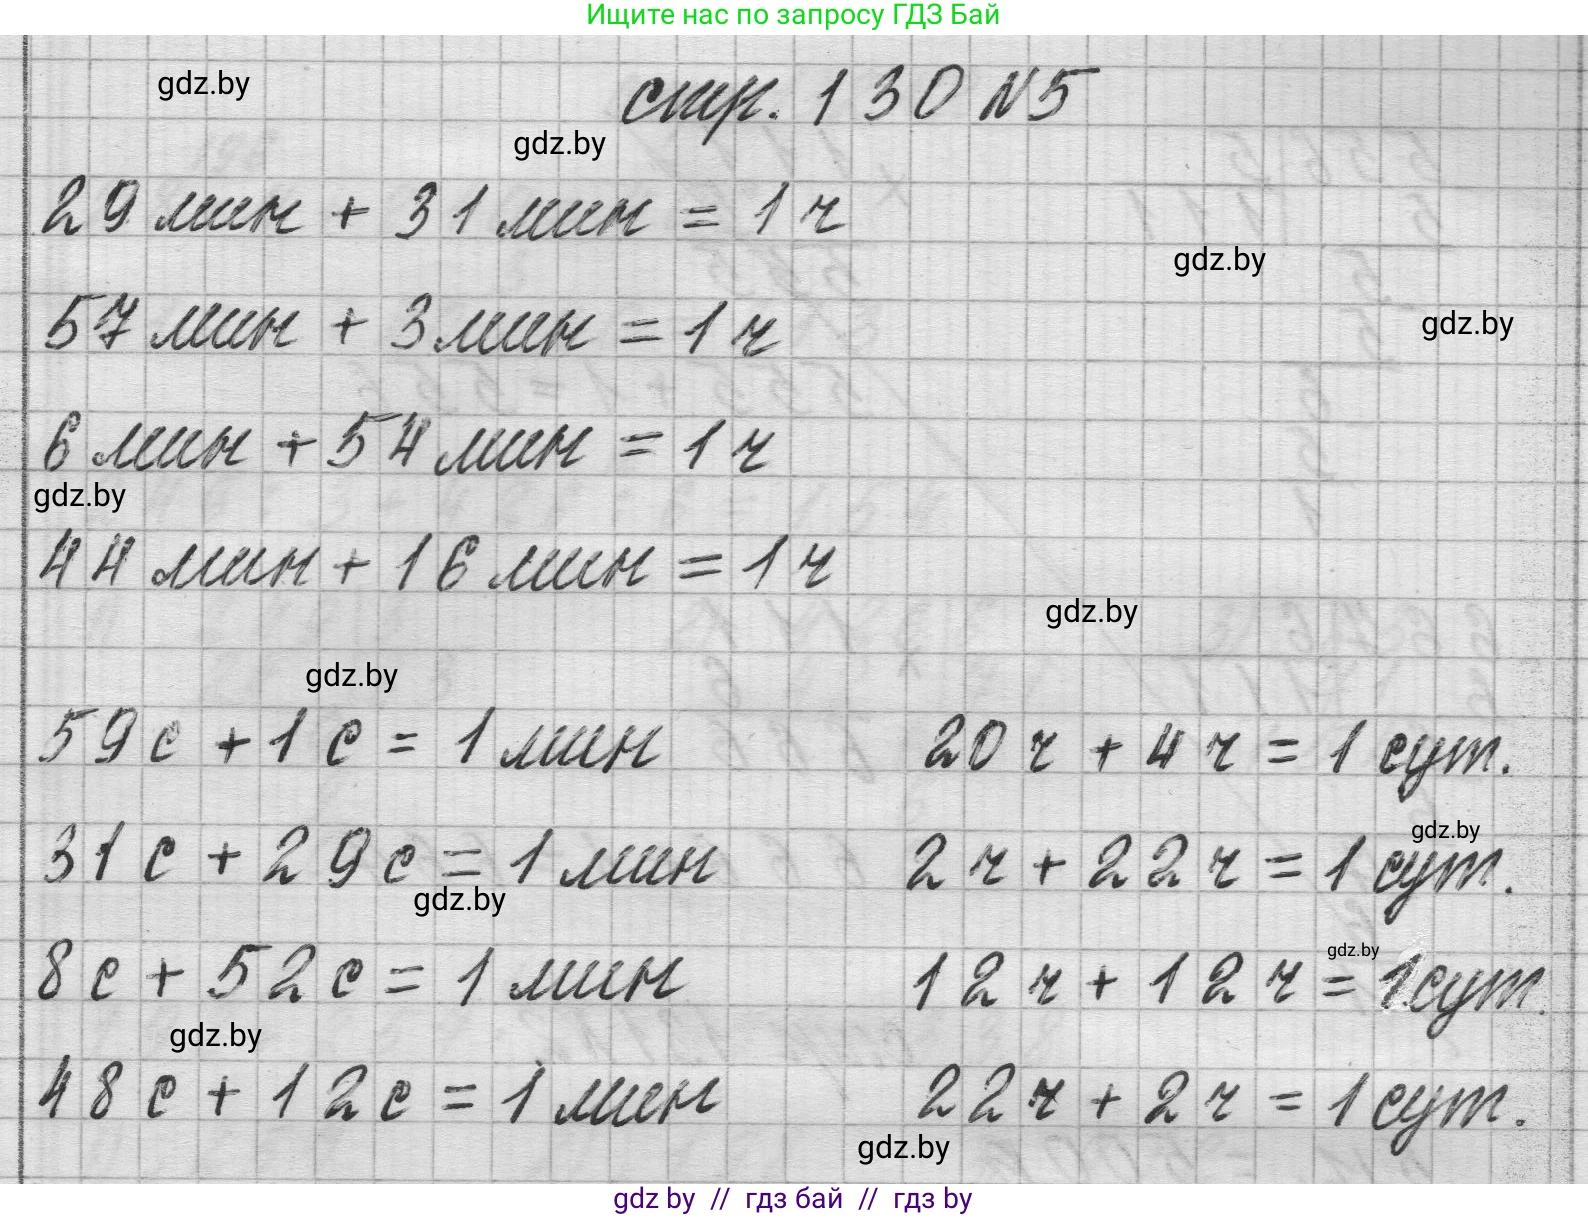 Ищите нас по запросу ГДЗ Бай
gdz.by
стр. 130 №5
gdz.by
29 мин + 31 мин = 1 ч
gdz.by
57 мин + 3 мин = 1 ч
gdz.by
6 мин + 54 мин = 1 ч
gdz.by
44 мин + 16 мин = 1 ч
gdz.by
gdz.by
59 с + 1 с = 1 мин
20 ч + 4 ч = 1 сут.
gdz.by
31 с + 29 с = 1 мин
2 ч + 22 ч = 1 сут.
gdz.by
gdz.by
8 с + 52 с = 1 мин
12 ч + 12 ч = 1 сут.
gdz.by
48 с + 12 с = 1 мин
22 ч + 2 ч = 1 сут.
gdz.by
gdz by // гдз бай // гдз by